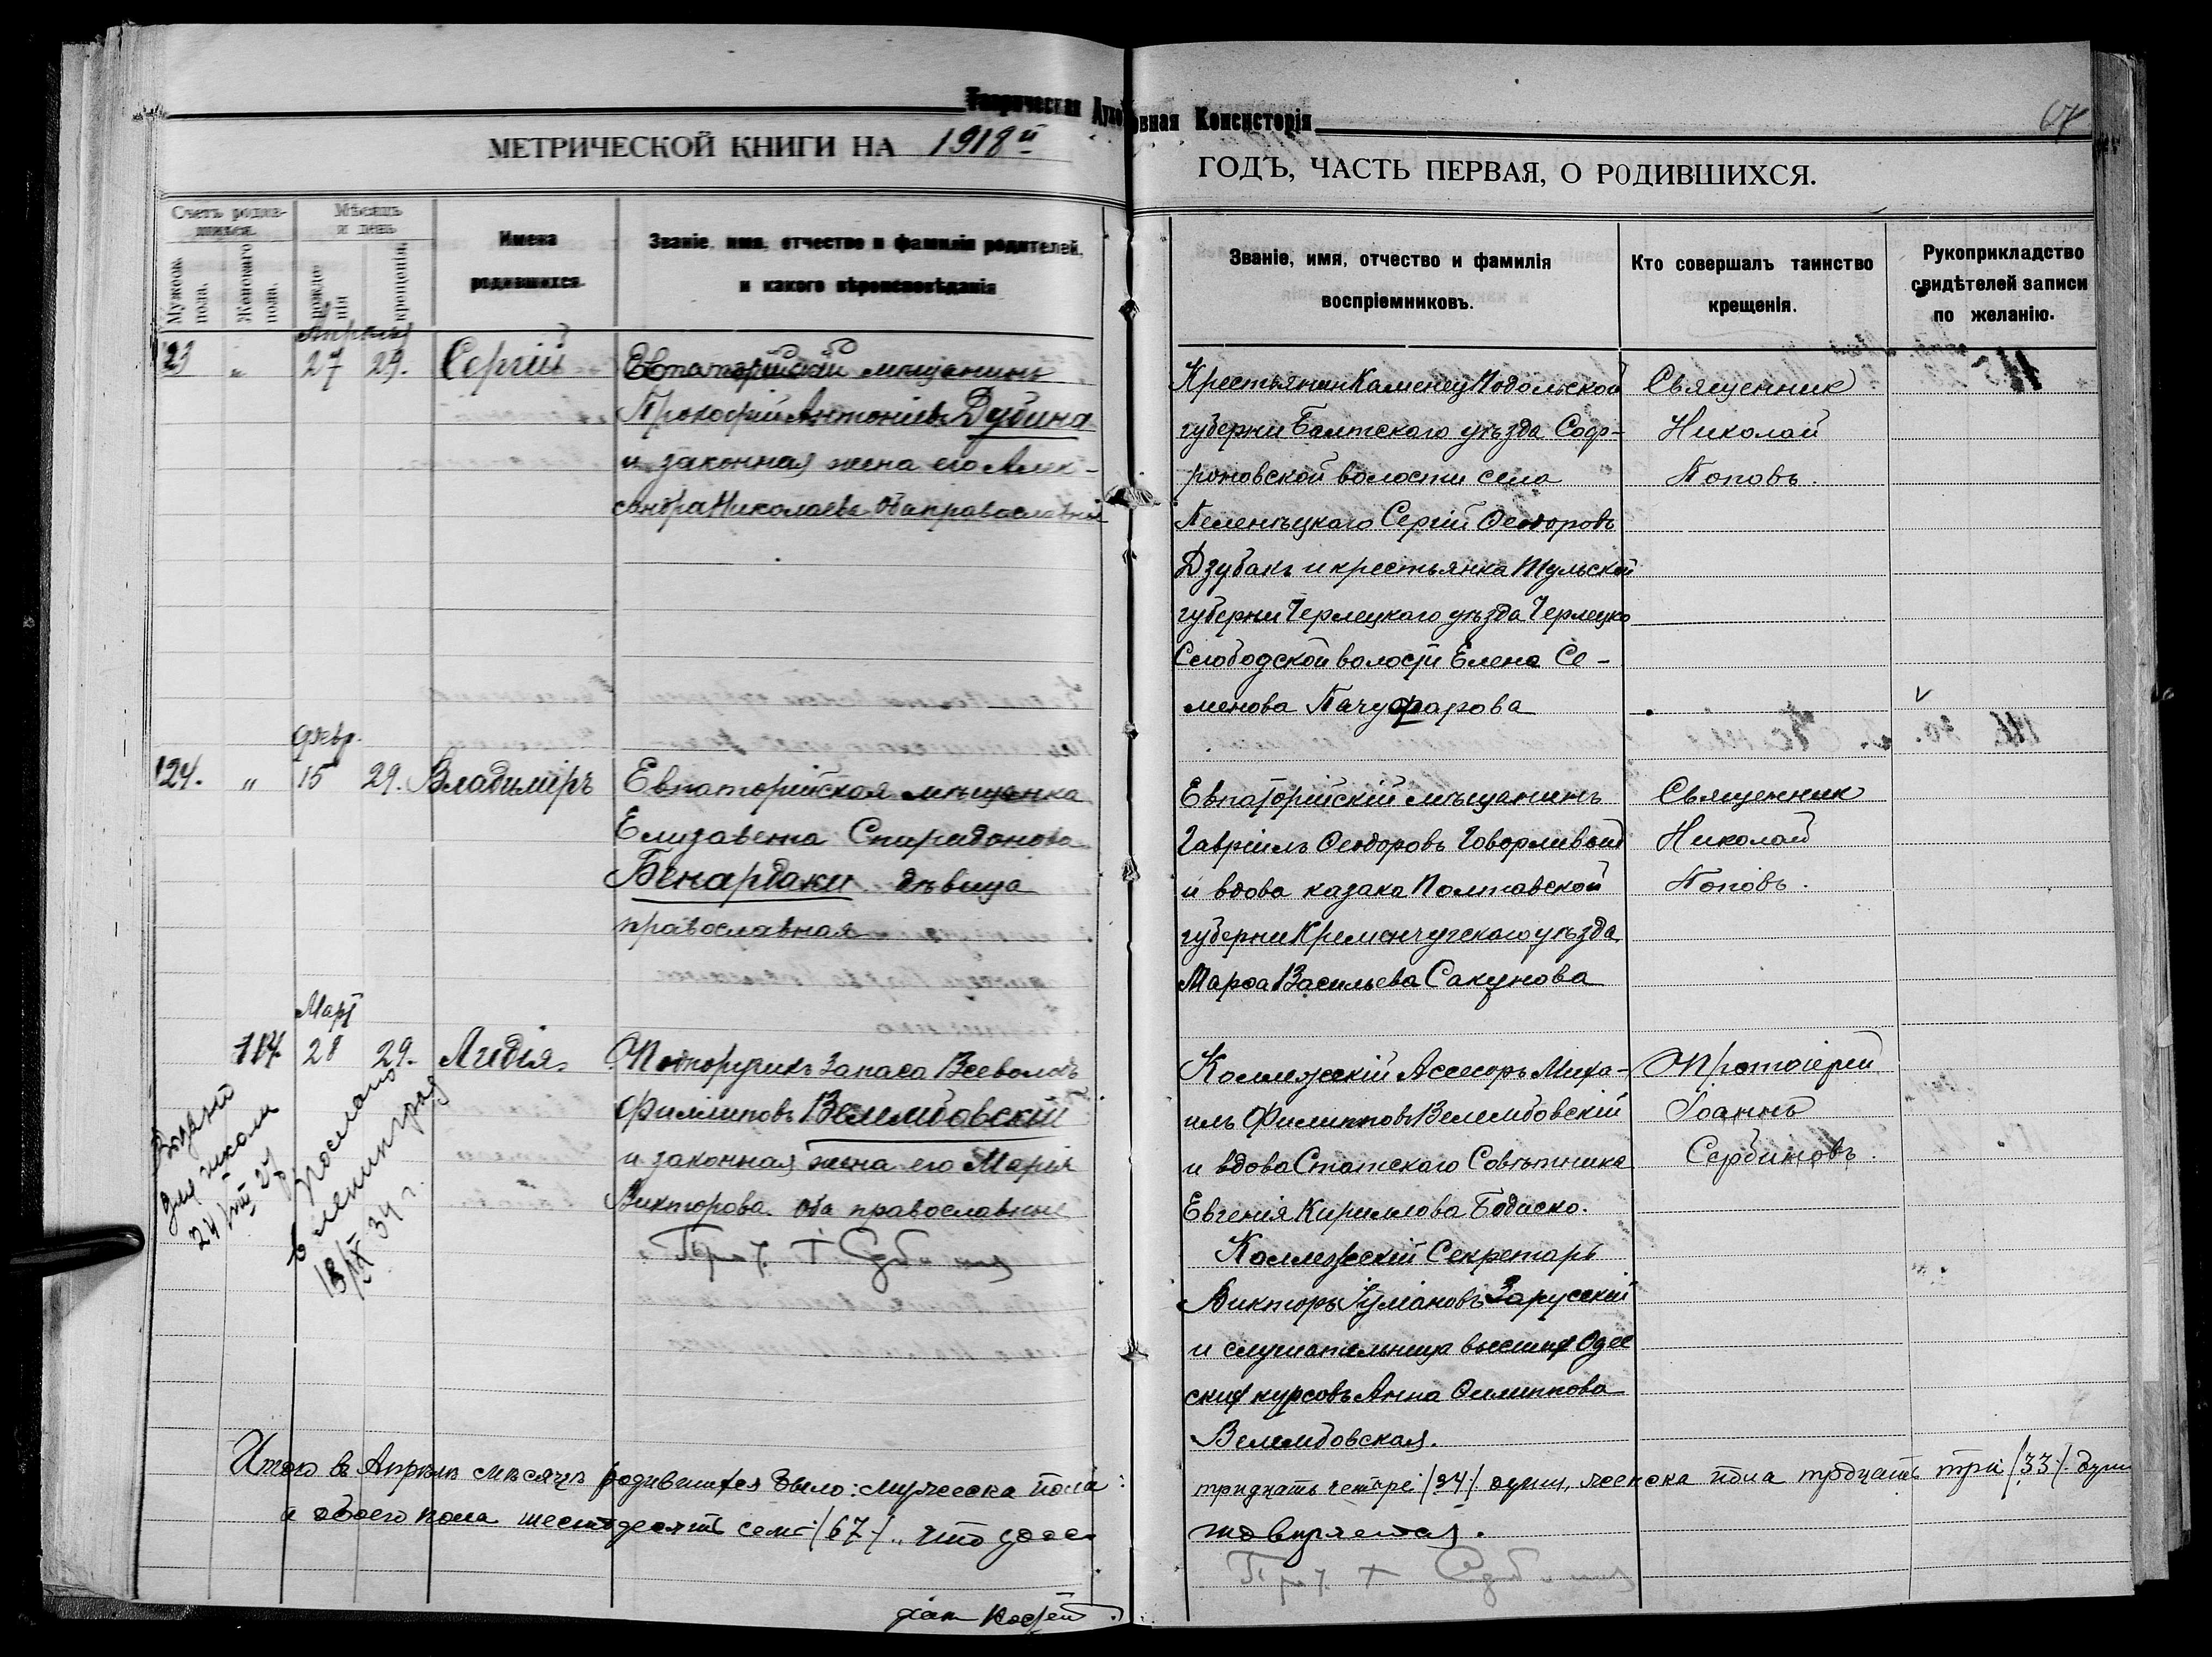 Таврическая Духовная Консисторія
67
МЕТРИЧЕСКОЙ КНИГИ НА 1918й
ГОДЪ, ЧАСТЬ ПЕРВАЯ, О РОДИВШИХСЯ.
Счетъ родив-
шихся.
Мужеска
пола.
Женскаго
пола.
Мѣсяцъ
и день
рожде-
нія
крещенія.
Имена
родившихся.
Званіе, имя, отчество и фамилія родителей,
и какого вѣроисповѣданія
Званіе, имя, отчество и фамилія
воспріемниковъ.
Кто совершалъ таинство
крещенія.
Рукоприкладство
свидѣтелей записи
по желанію.
Апрѣль
23 " 27 29. Сергій
Евпаторійскій мѣщанинъ
Прокофій Антоніевъ Дубина
и законная жена его Алек-
сандра Николаева оба православные
Крестьянин Каменец Подольской
губерни Балтского уѣзда Соф-
роновской волости села
Сергій Ѳеодоровъ
Дзубакъ и крестьянка Тульской
губерни Черлецкого уѣзда Черлецко
Слободской волости Елена Се-
менова Пачуфарова
Священник
Николай
Поповъ.
Февр.
124. " 15 29. Владиміръ
Евпаторійская мѣщанка
Елизавета Спиридонова
Бенардаки дѣвица
православная
Евпаторійскій мѣщанинъ
Гавріилъ Ѳеодоровъ Говорливый
и вдова казака Полтавской
губерни Кременчугского уѣзда
Марѳа Васильева Сакунова
Священник
Николай
Поповъ.
Март
117. 28 29. Лидія
Подпоручикъ запаса Всеволодъ
Филлиповъ Велембовскій
и законная жена его Марія
Викторова. оба православные
Коллежскій Ассесоръ Миха-
илъ Филипповъ Велембовскій
и вдова Статского Совѣтника
Евгенія Кириллова Бодиско.
Коллежскій Секретарь
Викторъ Іуліановъ Зарусскій
и слушательница высших Одес
ских курсовъ Анна Филиппова
Велембовская.
Протоіерей
Іоаннъ
Сербиновъ.
Выдано
для школи
24/VIII 27
Послано
в Ленинград
13/IX 34 г.
Итого въ Апрѣлѣ мѣсяцѣ родившихся было: мужеска пола:
тридцать четыре /34/ души, женска пола тридцать три /33/. души
и обоего пола шестьдесятъ семь /67/., что удос-
товѣряется.